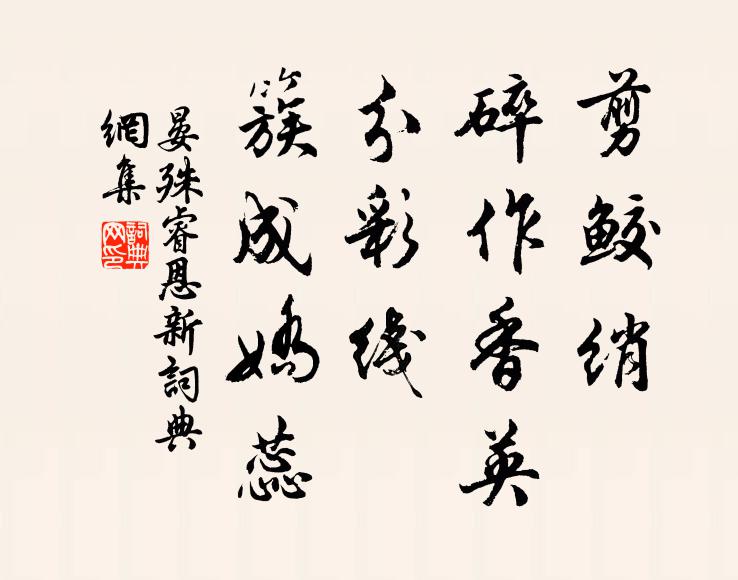 剪鲛绡
碎作香英
分彩线
簇成娇蕊
晏殊睿恩新詞典
網集
詞典
网印